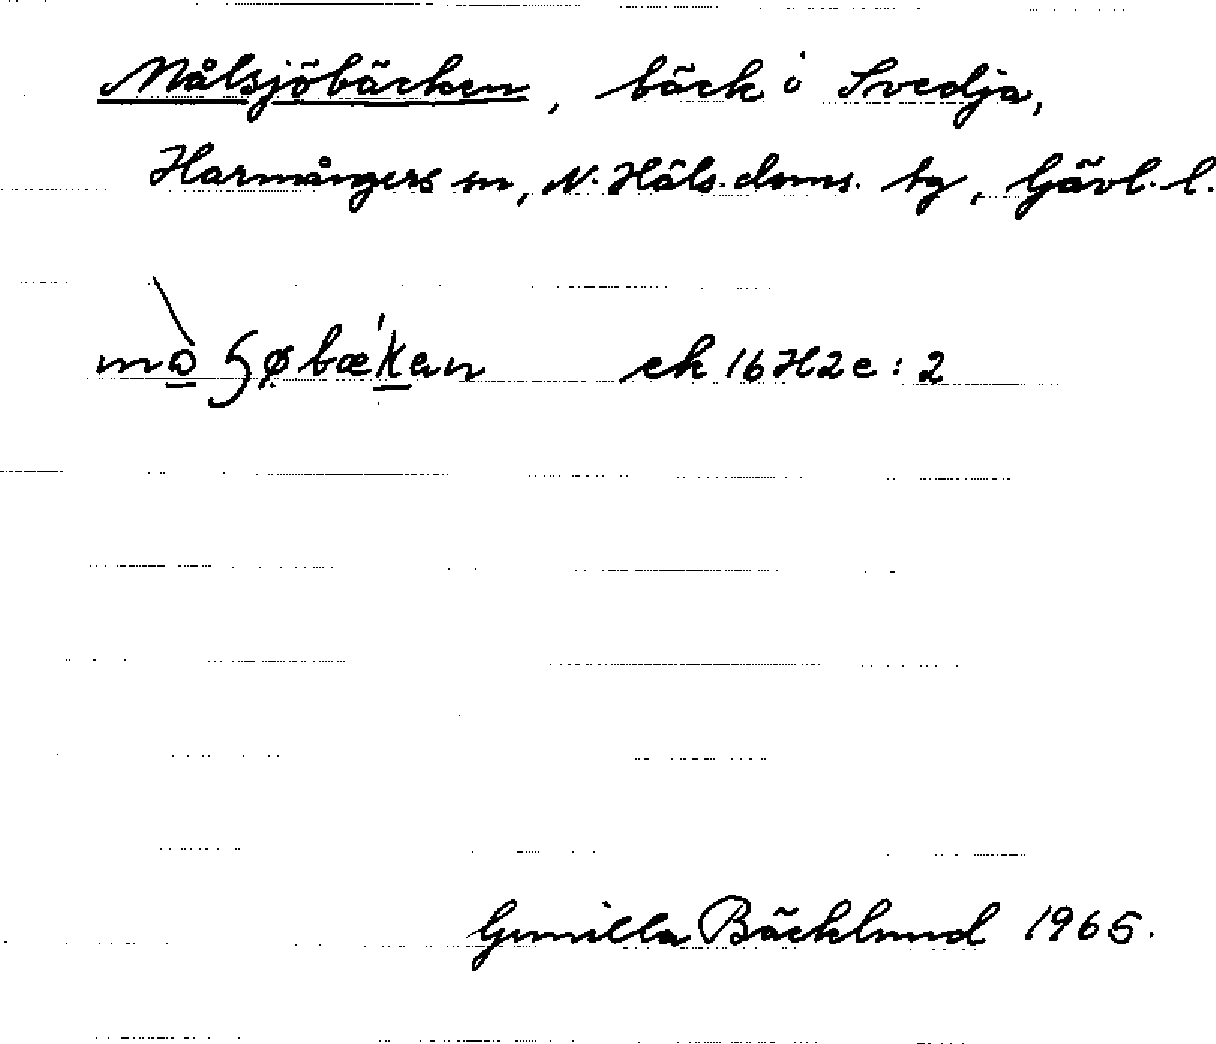 Målsjöbäcken, bäck i Svedja,
Harmångers sn, N. Häls. doms. tg, Gävl. l.
ek 16H2e:2
Gunilla Bäcklund 1965.